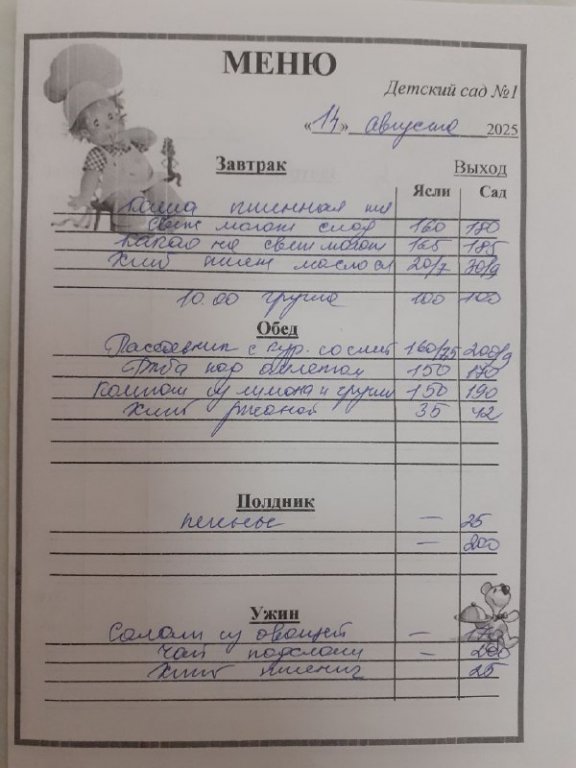 МЕНЮ
Детский сад №1
«14» августа 2025
Завтрак Выход
Ясли Сад
Каша пшенная на
свеж молоке слад 160 180
Какао на свеж молоке 165 185
Хлеб пшен масло сл 20/7 30/9
10.00 груша 100 100
Обед
Рассольник с кур. со смет 160/7,5 200/9
Рыба под омлетом 150 170
Компот из лимона и груши 150 190
Хлеб ржаной 35 42
Полдник
печенье — 25
— 200
Ужин
Салат из овощей —
Чай подслащ —
Хлеб пшенич 25